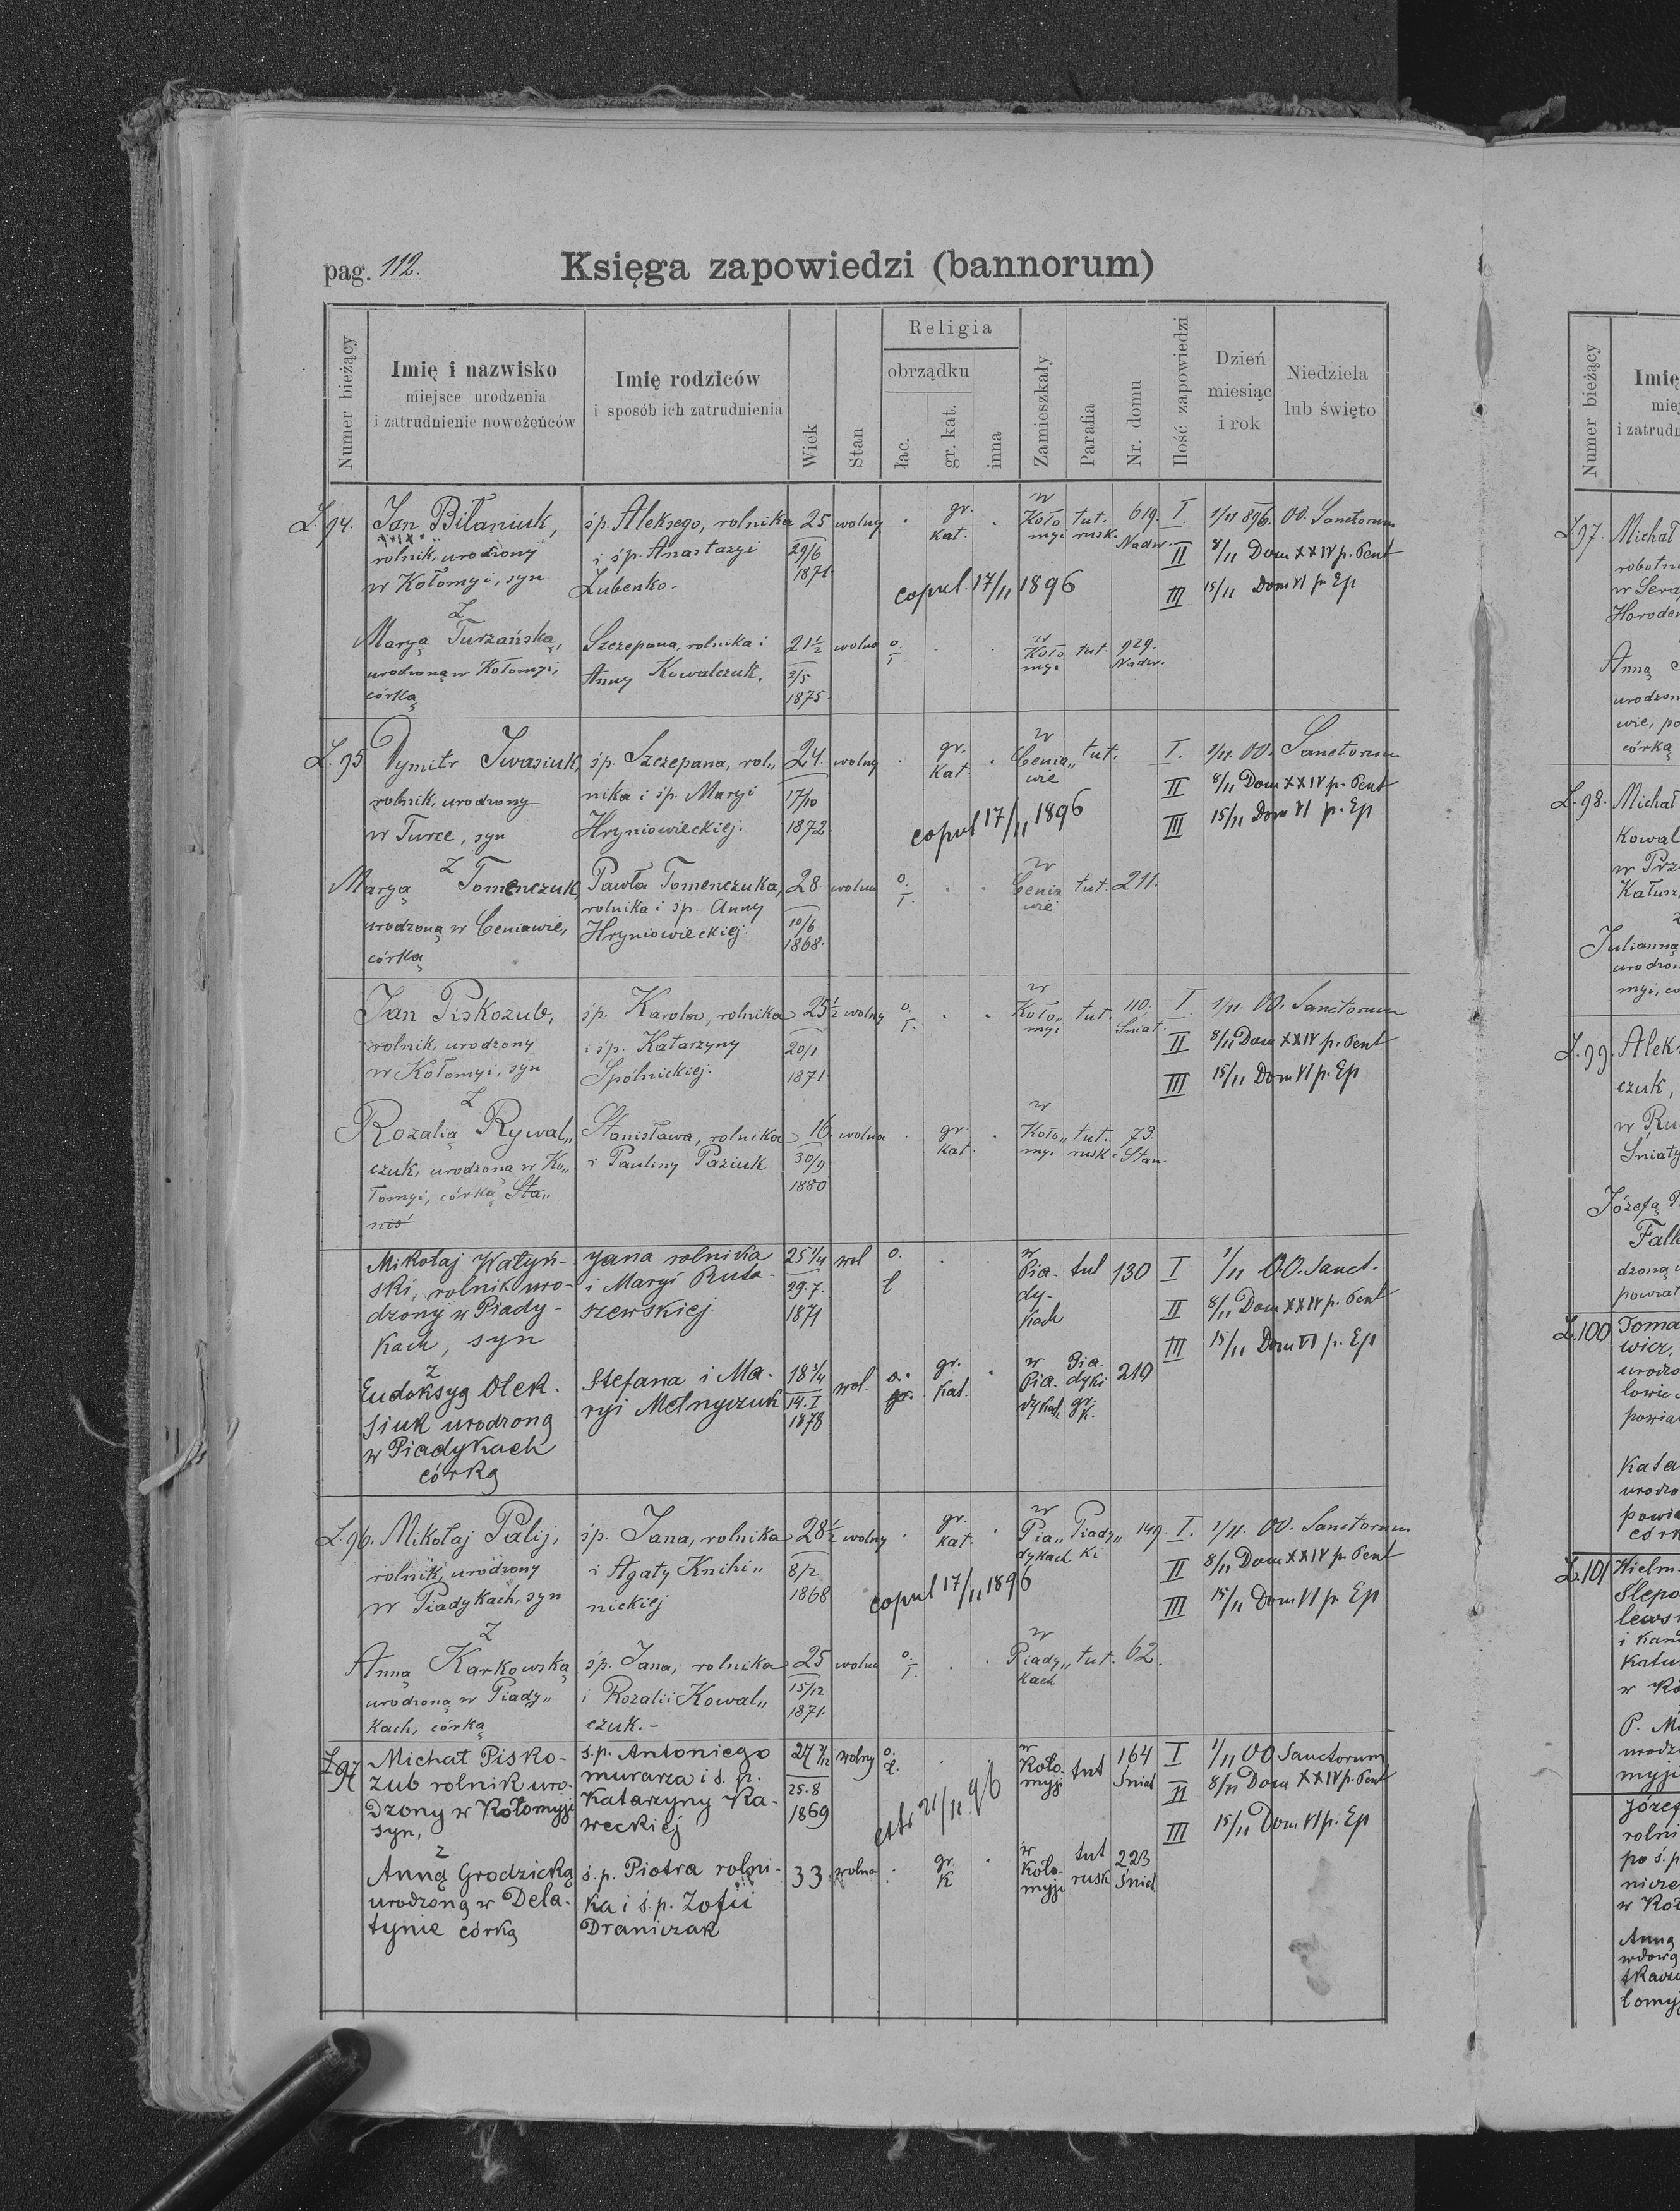 pag. 112.
Księga zapowiedzi (bannorum)
Numer bieżący
Imię i nazwisko
miejsce urodzenia
i zatrudnienie nowożeńców
Imię rodziców
i sposób ich zatrudnienia
Wiek
Stan
Religia
obrządku
łac.
gr. kat.
inna
Zamieszkały
Parafia
Nr. domu
Ilość zapowiedzi
Dzień
miesiąc
i rok
Niedziela
lub święto
L. 94. Jan Bilaniuk, śp. Aleksego, rolnika 25 wolny . gr. kat. . w Kołomyi tut. rusk. 619. Nadw. I. 1/11 896. OO. Sanctorum
rolnik, urodzony i śp. Anastazyi 29/6 II 8/11 Dom XXIV p. Pent
w Kołomyi, syn Łubenko. 1871. copul. 17/11 1896 III 15/11 Dom VI p. Ep
Z
Maryą Turzańską, Szczepana, rolnika i 21½ wolna o. ł. . . w Kołomyi tut. 929. Nadw.
urodzoną w Kołomyi, Anny Kowalczuk. 2/5
córką 1875.
L. 95 Dymitr Iwasiuk, śp. Szczepana, rol„ 24. wolny . gr. kat. . w Ceniawie tut. I. 1/11. OO. Sanctorum
rolnik, urodzony nika i śp. Maryi 17/10 II 8/11 Dom XXIV p. Pent
w Turce, syn Hryniowieckiej. 1872. copul 17/11 1896 III 15/11 Dom VI p. Ep
Z
Maryą Tomenczuk, Pawła Tomenczuka, 28. wolna o. ł. . . w Ceniawie tut. 211.
urodzoną w Ceniawie, rolnika i śp. Anny 10/6
córką Hryniowieckiej. 1868.
Jan Piskozub, śp. Karola, rolnika 25½ wolny o. ł. . . w Kołomyi tut. 110. Śniat. I. 1/11. OO. Sanctorum
rolnik, urodzony i śp. Katarzyny 20/1 II 8/11 Dom XXIV p. Pent
w Kołomyi, syn Spólnickiej. 1871. III 15/11 Dom VI p. Ep
Z
Rozalią Rywal„ Stanisława, rolnika 16. wolna . gr. kat. . w Kołomyi tut. rusk. 73. Stan.
czuk, urodzoną w Ko„ i Pauliny Paziuk 30/9
łomyi, córką Sta„ 1880
nis
Mikołaj Watyń- Jana rolnika 25 1/4 wol o. ł . . w Piadykach tut 130 I 1/11 OO. Sanct.
ski, rolnik uro- i Maryi Ruta- 29.7. II 8/11 Dom XXIV p. Pent
dzony w Piady- szewskiej. 1871 III 15/11 Dom VI p. Ep
kach, syn
z
Eudoksyą Olek- Stefana i Ma- 18 3/4 wol. o. gr. gr. kat. . w Piadykach Piadyki gr. k. 219
siuk urodzoną ryi Melnyczuk 14.I
w Piadykach 1878
córką
L. 96. Mikołaj Palij, śp. Jana, rolnika 28½ wolny . gr. kat. . w Piadykach Piadyki 149. I. 1/11. OO. Sanctorum
rolnik, urodzony i Agaty Knihi„ 8/2 II 8/11 Dom XXIV p. Pent
w Piadykach, syn nickiej 1868 copul 17/11 1896 III 15/11 Dom VI p. Ep
Z
Anną Karkowską śp. Jana, rolnika 25 wolna o. ł. . . w Piadykach tut. 62.
urodzoną w Piady„ i Rozalii Kowal„ 15/12
kach, córką czuk.- 1871.
L. 97 Michał Pisko- ś.p. Antoniego 27 2/12 wolny o. ł. . . w Kołomyji tut 164 Śniat I 1/11 OO Sanctorum
zub rolnik uro- murarza i ś. p. 25.8 II 8/11 Dom XXIV p. Pent
dzony w Kołomyji Katarzyny Ka- 1869 21/11 96 III 15/11 Dom VI p. Ep
syn, weckiej
z
Anną Grodzicką ś.p. Piotra rolni- 33. wolna . gr. k . w Kołomyji tut rusk 223 Śniat
urodzoną w Dela- ka i ś.p. Zofii
tynie córką Draniczak
Numer bieżący
Imię
i zatrudn
L. 97. Michał
robotni
w Sera
Horoden
Anną
urodzon
wie, po
córką
L. 98. Michał
kowal
w Prz
Kałusz
Z
Julianną
urodzon
myi, có
L. 99. Alek
czuk,
w Ru
Śniaty
Józefą
Falk
dzoną
powiat
L. 100 Toma
wicz,
urodz
lowie
powia
Kata
urodz
powia
córk
L. 101 Wielm
Slepo
lews
i kan
katu
w Ko
P. M
urodz
myj
Józef
rolni
po ś.p
nicze
w Koł
Anną
wdową
łomyj